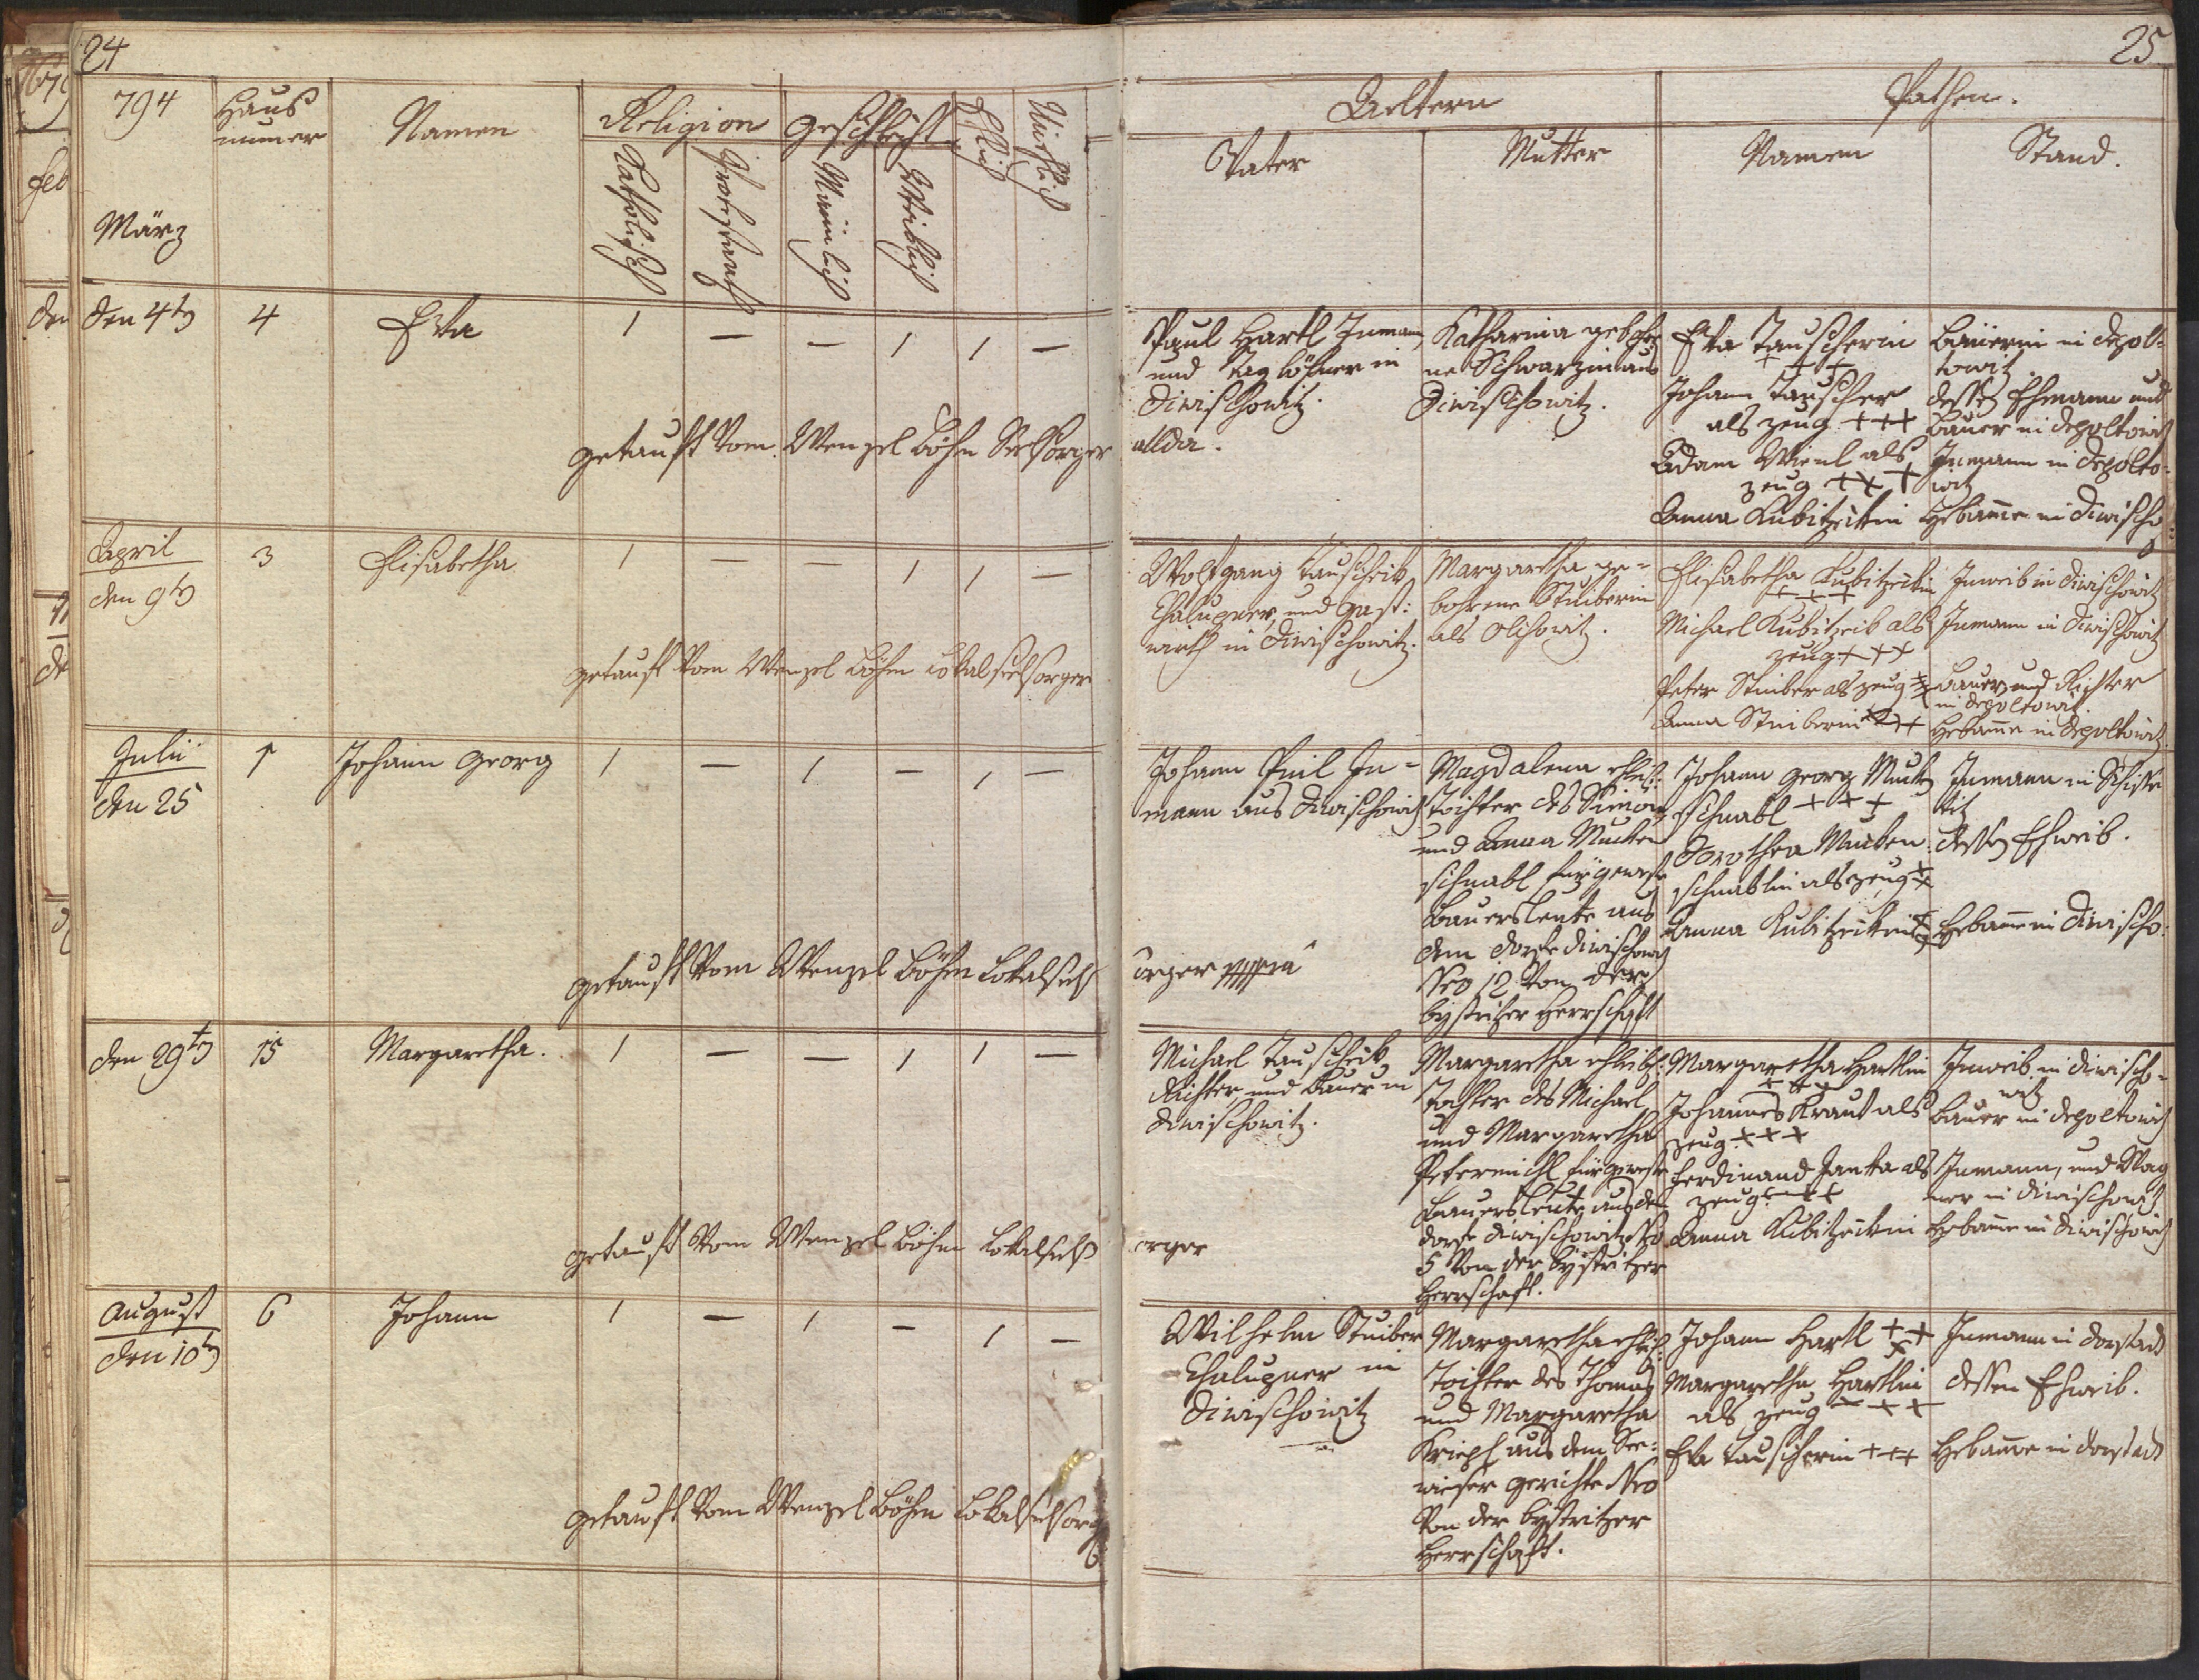 24
794
März
Haus
numer
Namen
Religion
Katholisch
Protestantisch
Geschlecht
Männlich
Weiblich
Ehlich
Unehlich
den 4t
4
Eva
1 — — 1 1 —
getauft vom Wenzel Böhm Seelsorger
April
den 9t
3
Elisabetha
1 — — 1 1 —
getauft vom Wenzel Böhm Lokalseelsorger
Julii
den 25
1
Johann Georg
1 — 1 — 1 —
getauft vom Wenzel Böhm Lokalseels
den 29t
15
Margaretha.
1 — — 1 1 —
getauft vom Wenzel Böhm Lokalseels
August
den 10t
6
Johann
1 — 1 — 1 —
getauft vom Wenzel Böhm Lokalseelsorg
25
Aeltern
Vater
Mutter
Pathen.
Namen
Stand.
Paul Hartl Inmann,
und Taglöhner in
Diwischowitz.
allda.
Katharina gebohr
ne Schwarzin aus
Diwischowitz.
Eva Tauscherin
+ + +
Johann Tauscher
als zeug + + +
Adam Wienl als
zeug + + +
Anna Kubitzekin
Bäuerin in Depol-
towitz.
dessen Ehmann und
Bauer in Depoltowitz
Inmann in Depolto-
witz
Hebamme in Diwischo
Wolfgang Tauschek
Chalupner, und Gast:
wirth in Diwischowitz.
Margaretha ge-
bohrene Stuiberin
als Olchowitz.
Elisabetha Kubitzekin
+ + +
Michael Kubitzek als
zeug + + +
Peter Stuiber als zeug
Anna Stuiberin
Inweib in Diwischowitz
Inmann in Diwischowitz
Bauer und Richter
in Depoltowitz.
Hebamme in Depoltowitz
Johann Pril In-
mann aus Diwischowitz
orger
Magdalena ehlich:
Tochter des Simon
und Anna Mucken
schnabl fürgeweste
Bauersleute aus
dem Dorfe Diwischowitz
Nro 12 von der
bystritzer Herrschaft
Johann Georg Muck
schnabl + + +
Dorothea Mucken
schnablin als zeug
Anna Kubitzekin
Inmann in Schiste
titz
dessen Ehweib.
Hebamme in Diwischo:
Michael Tauschek
Richter, und Bauer in
Diwischowitz.
orger
Margaretha ehleibl:
Tochter des Michael
und Margaretha
Petermichl fürgeweste
Bauersleute aus dem
Dorfe Diwischowitz Nro
5 von der bystritzer
Herrschaft.
Margaretha Hartlin
+ + +
Johannes Kraus als
zeug + + +
Ferdinand Janka als
zeug + + +
Anna Kubitzekin
Inweib in Diwischo-
witz
Bauer in Depoltowitz
Inmann, und Wag
ner in Diwischowitz
Hebamme in Diwischowitz
Wilhelm Stuiber
Chalupner in
Diwischowitz
Margaretha ehlich:
Tochter des Thomas
und Margaretha
Kriegl aus dem See:
wieser Gerichte Nro
von der bystritzer
Herrschaft.
Johann Hartl + + +
Margaretha Hartlin
als zeug + + +
Eva Tauscherin + + +
Inmann in Dorstadt
dessen Ehweib.
Hebamme in Dorstadt